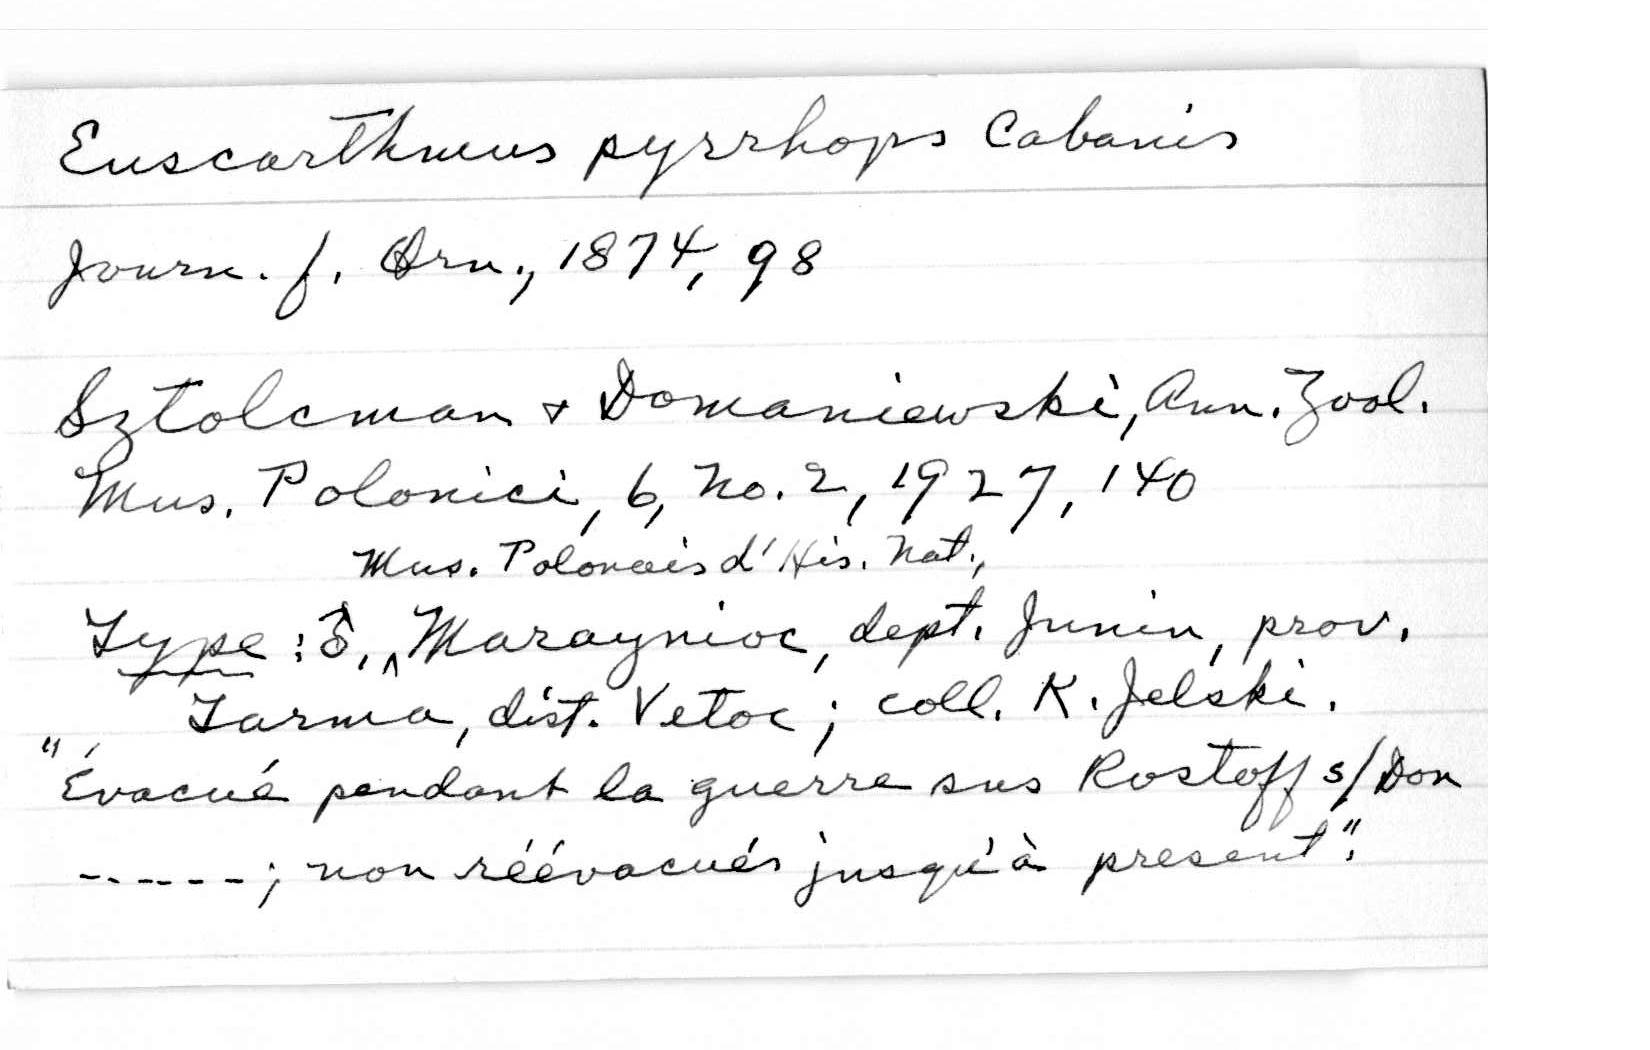 Euscarthmus pyrrhops Cabanis
Journ. f. Orn., 1874, 98
Sztolcman & Domaniewski, Ann. Zool.
Mus. Polonici, 6, No. 2, 1927, 140
Mus. Polonais d'His. Nat.,
Type: ♂, ^ Maraynioc, dept. Junin, prov.
Tarma, dist. Vetoc; coll. K. Jelski.
"Évacué pendant la guerre sus Rostoff s/Don
------; non réévacués jusqu'à present".